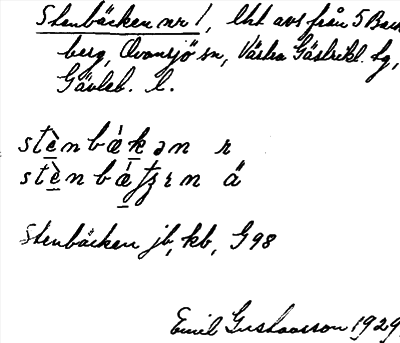 Stenbäcken nr 1, lht avs från S Back
berg, Ovansjö sn, Västra Gästrikl. tg,
Gävleb. l.
stènbǽkən r
stènbǽtʒɪn ä
Stenbäcken jb, kb, G98
Emil Gustavsson 1929